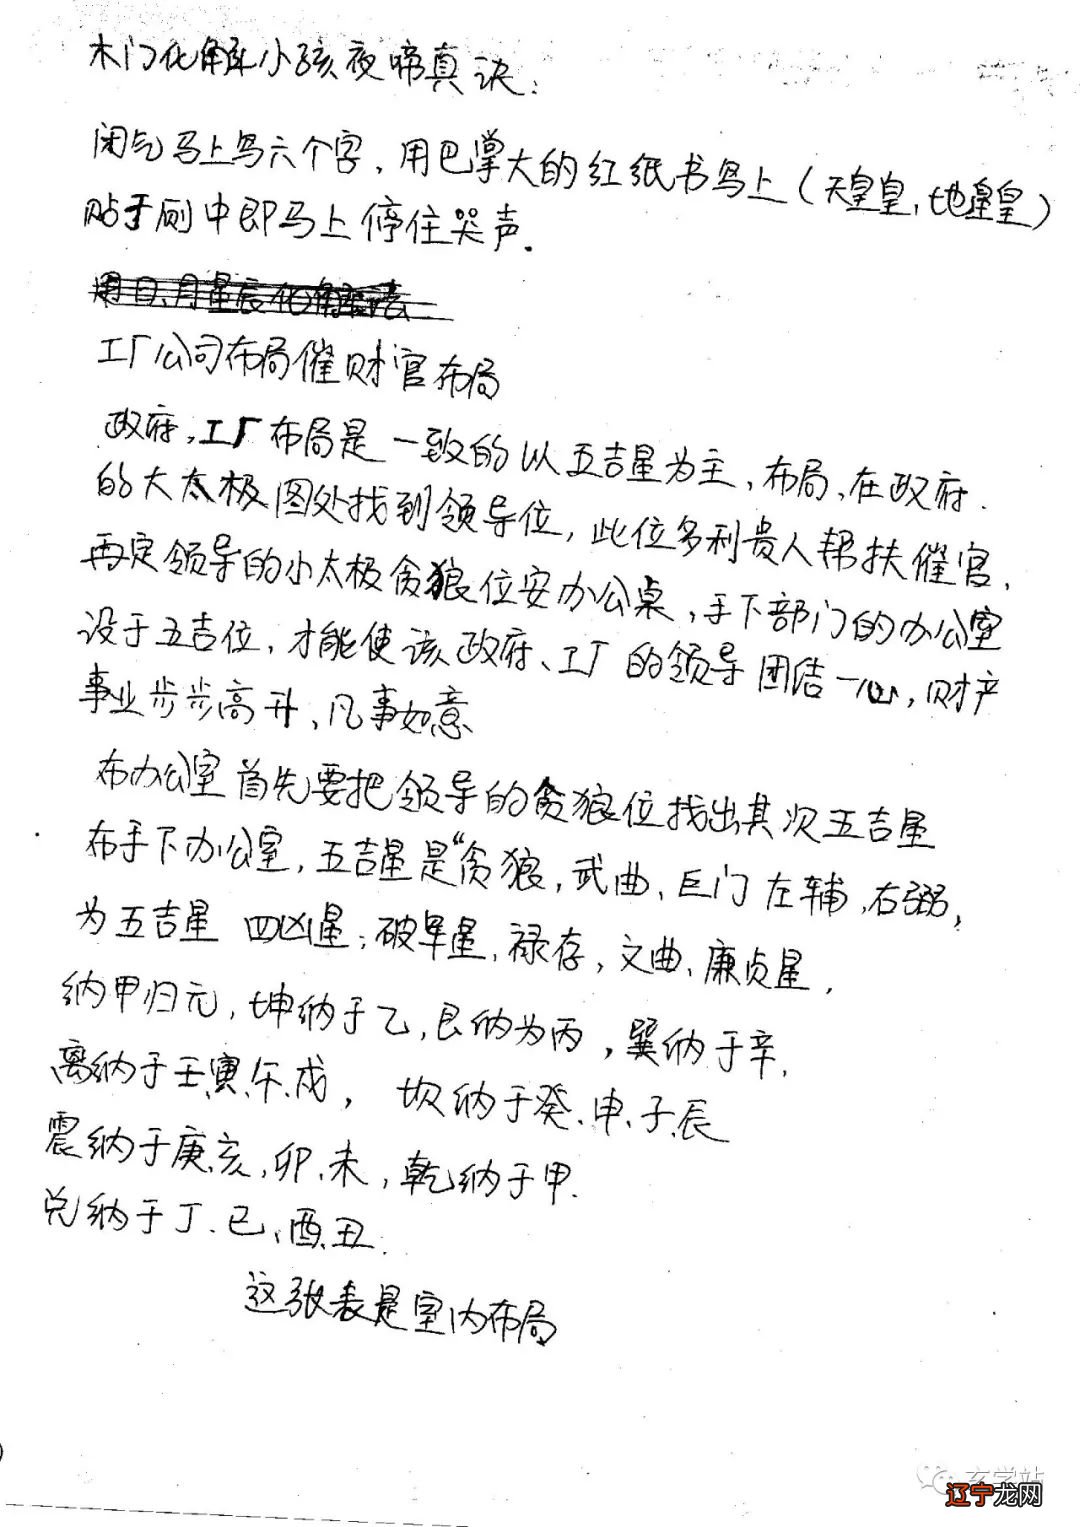 木门化解小孩夜啼真诀:
闭气马上写六个字,用巴掌大的红纸书写上(天皇皇,地皇皇)
贴于厕中即马上停住哭声.
用日、月星辰化解法
工厂公司布局催财官布局
政府,工厂布局是一致的以五吉星为主,布局,在政府.
的大太极图处找到领导位,此位多利贵人帮扶催官,
再定领导的小太极贪狼位安办公桌,手下部门的办公室
设于五吉位,才能使该政府、工厂的领导团结一心,财产
事业步步高升,凡事如意
布办公室首先要把领导的贪狼位找出其次五吉星
布手下办公室,五吉星是“贪狼,武曲、巨门左辅,右弼,
为五吉星 四凶星;破军星,禄存,文曲、廉贞星,
纳甲归元,坤纳于乙,艮纳为丙,巽纳于辛,
离纳于壬、寅、午、戌, 坎纳于癸、申、子、辰
震纳于庚、亥,卯、未,乾纳于甲.
兑纳于丁、巳、酉、丑.
这张表是室内布局
玄学站
辽宁龙网